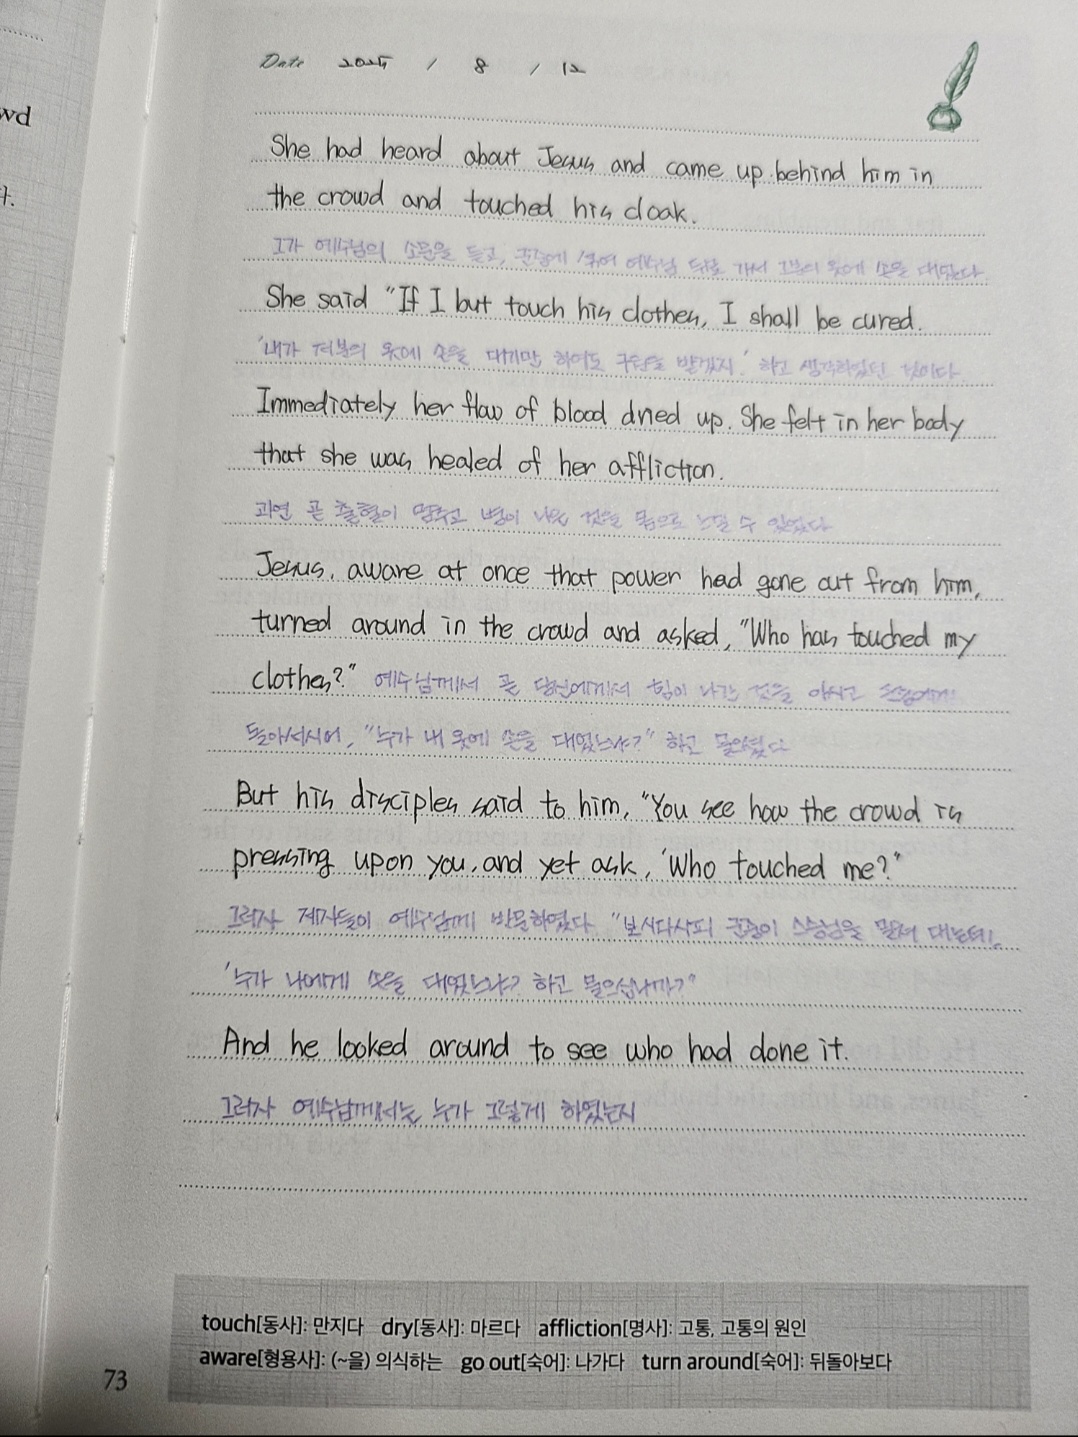 wd
t.
Date 2025 / 8 / 12
She had heard about Jesus and came up behind him in
the crowd and touched his cloak.
그가 예수님의 소문을 듣고, 군중에 섞여 예수님 뒤로 가서 그분의 옷에 손을 대었다.
She said "If I but touch his clothes, I shall be cured.
'내가 저분의 옷에 손을 대기만 하여도 구원을 받겠지.' 하고 생각하였던 것이다.
Immediately her flow of blood dried up. She felt in her body
that she was healed of her affliction.
과연 곧 출혈이 멈추고 병이 나은 것을 몸으로 느낄 수 있었다
Jesus, aware at once that power had gone out from him,
turned around in the crowd and asked, "Who has touched my
clothes?" 예수님께서 곧 당신에게서 힘이 나간 것을 아시고 군중에게
돌아서시어, "누가 내 옷에 손을 대었느냐?" 하고 물으셨다
But his disciples said to him, "You see how the crowd is
pressing upon you, and yet ask, 'Who touched me?"
그러자 제자들이 예수님께 반문하였다 "보시다시피 군중이 스승님을 밀쳐 대는데,
'누가 나에게 손을 대었느냐? 하고 물으십니까?"
And he looked around to see who had done it.
그러자 예수님께서는 누가 그렇게 하였는지
touch[동사]: 만지다 dry[동사]: 마르다 affliction[명사]: 고통, 고통의 원인
aware[형용사]: (~을) 의식하는 go out[숙어]: 나가다 turn around[숙어]: 뒤돌아보다
73